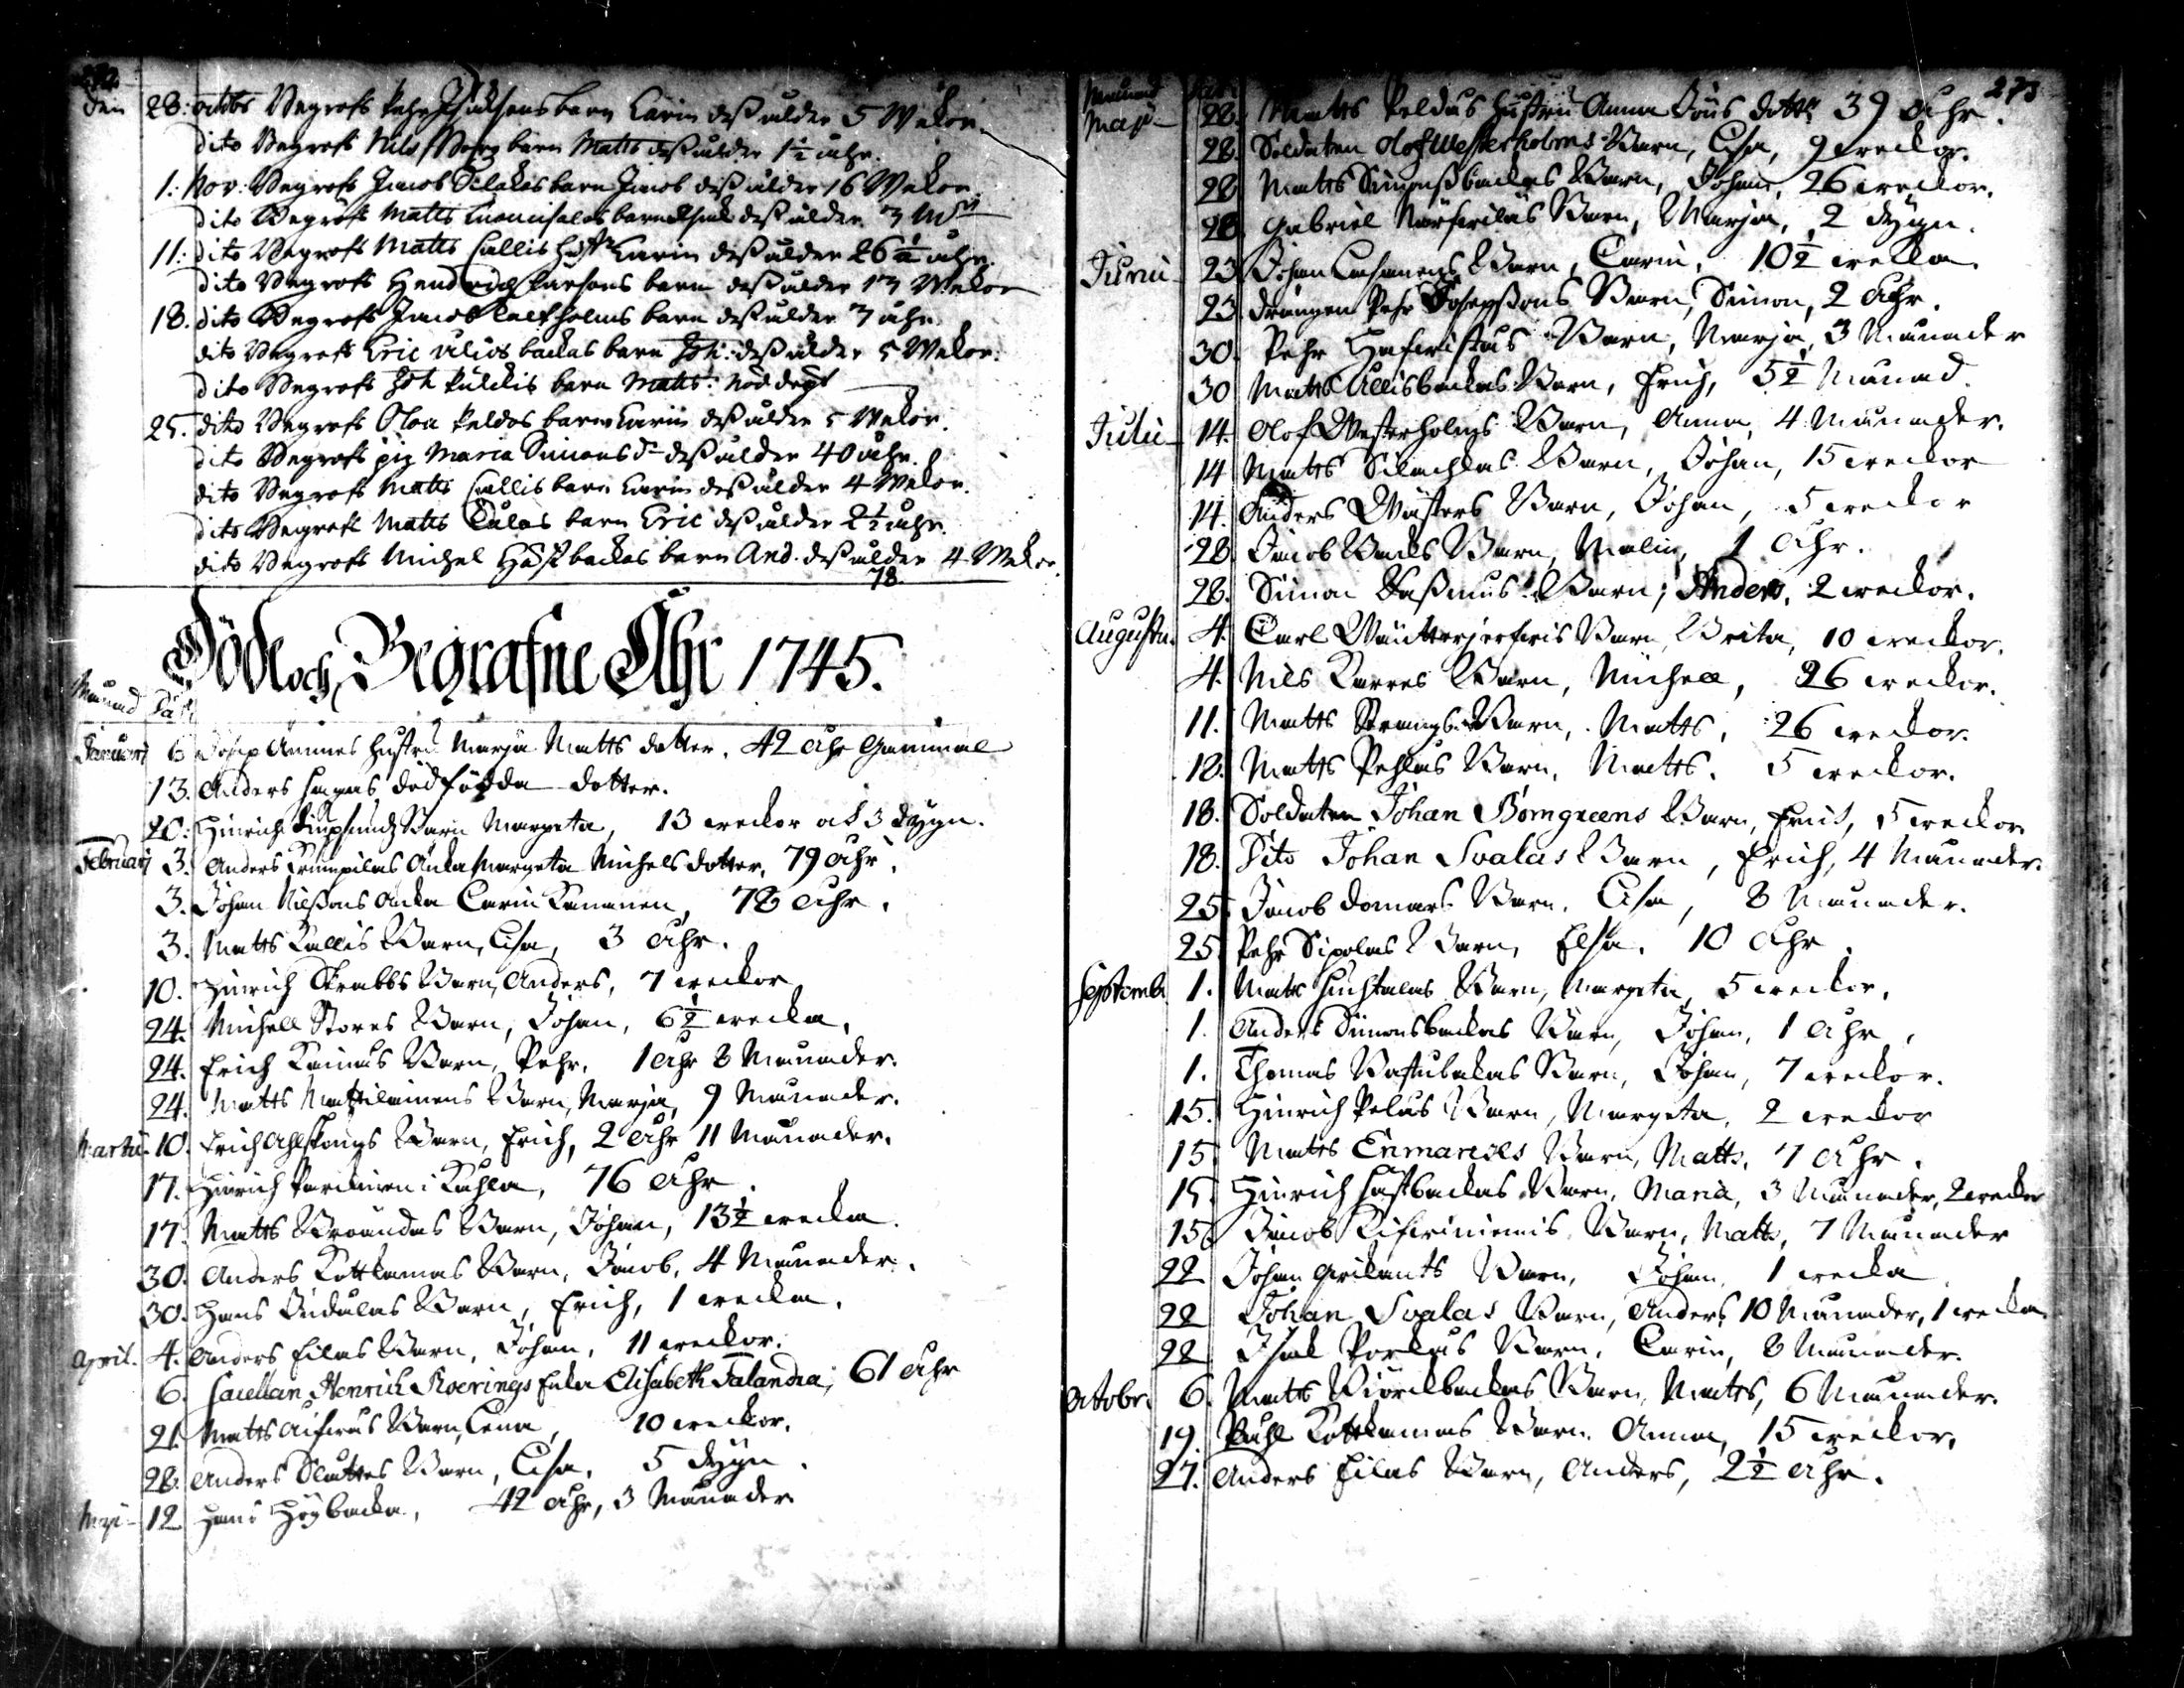 272
den 28: octobr Begrofs Pehr Isaksons barn Carin dess ålder 5 Wekor
dito Begrofs Nils barn Matts dess ålder 1½ åhr.
1: Nov: Begrofs Jacob Silakas barn Jacob dess ålder 16 Wekor.
dito Begrofs Matts barn dess ålder 3
11: dito Begrofs Matts Callis Carin dess ålder 26½ åhr.
dito Begrofs Hendrich Larsons barn dess ålder 13 Wekor
18. dito Begrofs Jacob barn dess ålder 7 åhr
dito Begrofs Eric backas barn Joh: dess ålder 5 Wekor.
dito Begrofs Joh barn Matts: Nöd dept
25. dito Begrofs Oloa Peldos barn Carin dess ålder 5 Wekor.
dito Begrofs pig Maria Simonsd dess ålder 40 åhr.
dito Begrofs Matts Callis barn Carin dess ålder 4 Wekor.
dito Begrofs Matts barn Eric dess ålder 2½ åhr.
dito Begrofs Michel Hästbackas barn And. dess ålder 4 Wekor.
78
Döde och Begrafne Åhr 1745.
Månad
Januari 6 Josep Ånnes Hustru Marja Matts dotter. 42 Åhr Gammal
13. Anders Hagas dödfödda dotter.
20: Hinrich Barn Margeta, 13 weckor och 3 dygn.
Februari 3. Anders Krumpilas Änka Margeta Michels dotter, 79 Åhr.
3. Johan Nilssons Änka Carin Kananen, 78 Åhr.
3. Matts Kallis Barn, Lisa, 3 Åhr.
10. Hinrich Skrabbs Barn, Anders, 7 weckor
24. Michell Stores Barn, Johan, 6½ wecka.
24. Erich Kainus Barn, Pehr, 1 Åhr 8 Månader.
24. Matts Mattilainens Barn, Marja, 9 Månader.
Martii. 10. Erich Ahlskougs Barn, Erich, 2 Åhr 11 Månader.
17. Hinrich i Kåhla, 76 Åhr.
17. Matts Broändas Barn, Johan, 13½ wecka.
30. Anders Kottkamas Barn, Jacob, 4 Månader.
30. Hans Barn, Erich, 1 wecka.
April. 4. Anders Eilas Barn, Johan, 11 weckor.
6. Sacellan Henrich Roerings Enka Elisabeth Falandra, 61 Åhr
21. Matts Barn, Lena, 10 weckor.
28. Anders Sluttes Barn, Lisa, 5 dygn.
Maji 12 Hans Högbacka, 42 Åhr, 3 Månader
273
Månad
Maji 28. Matts Peldus Hustru Anna dotter 39 Åhr.
28. Soldaten Olof Westerholms Barn, Lisa, 9 weckor.
28 Matts Simonssbackas Barn, Johan, 26 weckor.
28. Gabriel Barn, Marja, 2 dygn.
Junii 23 Johan Barn, Carin, 10½ wecka.
23. drängen Pehr Josepssons Barn, Simon, 2 Åhr.
30. Pehr Barn, Marja, 3 Månader
30 Matts Ullisbackas Barn, Erich, 5½ Månad.
Julii 14. Olof Westerholms Barn, Anna, 4 Månader.
14 Matts Silachkas Barn, Johan, 15 weckor
14. Anders Wästers Barn, Johan, 5 weckor
28. Jacob Backs Barn, Malin, 1 Åhr.
28. Simon Rassmus Barn, Anders, 2 weckor.
Augusti. 4. Carl Barn Brita, 10 weckor.
4. Nils Karres Barn, Michell, 26 weckor.
11. Matts Strangs Barn, Matts, 26 weckor.
18. Matts Pehlas Barn, Matts. 5 weckor.
18. Soldaten Johan Borngreens Barn, Erich, 5 weckor
18. Dito Johan Svalas Barn, Erich, 4 Månader.
25. Jacob Domars Barn, Lisa, 8 Månader.
25. Pehr Sipolas Barn, Elsa. 10 Åhr.
Septemb. 1. Matts Huchtalas Barn, Margeta, 5 weckor.
1. Anders Simonsbackas Barn, Johan, 1 Åhr,
1. Thomas Bastubackas Barn, Johan, 7 weckor.
15. Hinrich Pelus Barn, Margeta, 2 weckor
15. Matts Enmareses Barn, Matts, 7 Åhr.
15. Hinrich Hästbackas Barn, Maria, 3 Månader, 2 weckor
15 Jacob Kiswiniemis Barn, Matts, 7 Månader
22 Johan Barn, Johan, 1 wecka
22 Johan Svalas Barn, Anders, 10 Månader, 1 wecka
22 Isak Porkus Barn, Carin, 8 Månader.
Octobr. 6. Matts Biörckbackas Barn, Matts, 6 Månader.
19. Påhl Kottkamas Barn, Anna, 15 weckor,
27. Anders Eilas Barn, Anders, 2½ Åhr.